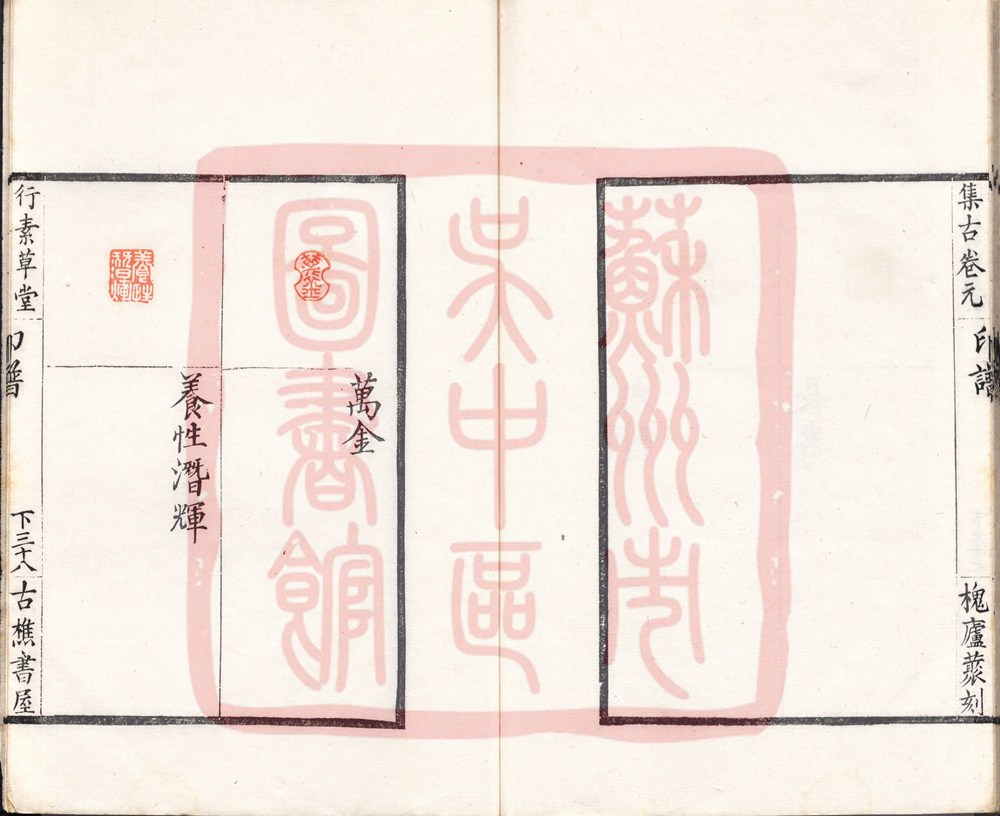 集古卷元
印譜
槐廬蒃刻
蘇州市
吳中區
圖書館
萬金
養性潛輝
養性潛輝
行素草堂
印譜
下三十八
古樵書屋